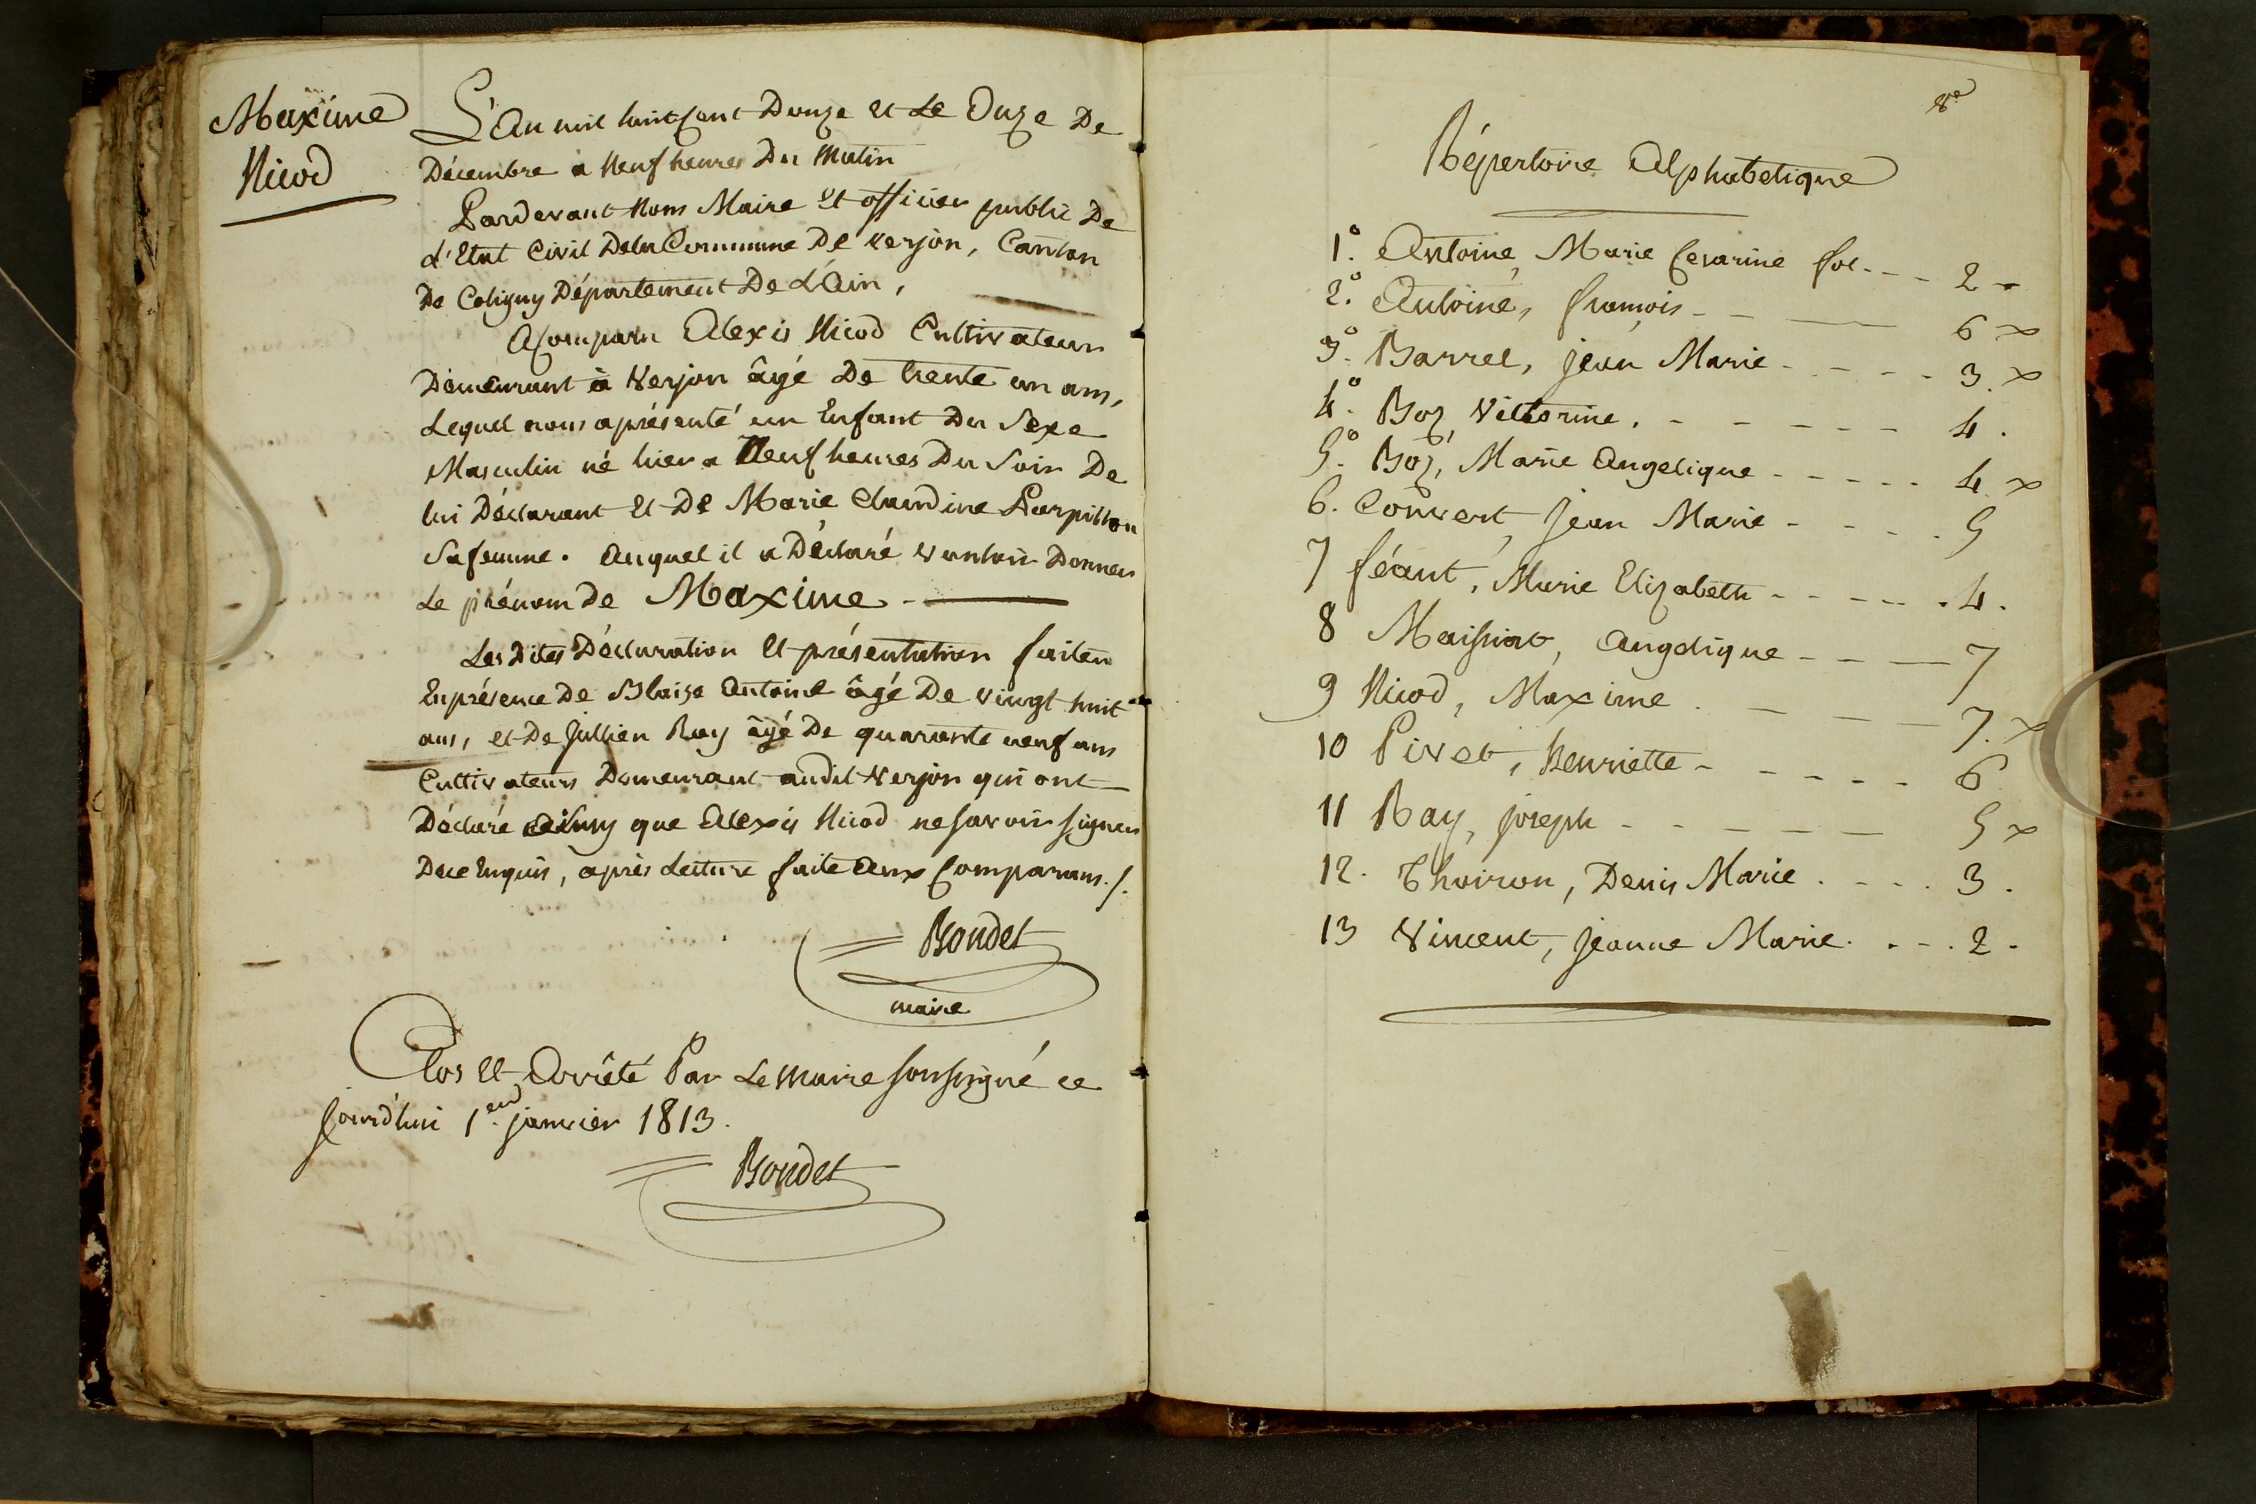 Maxime
Nicod
L'An mil huit Cent Douze et Le Onze De
Décembre à Neuf heures Du Matin
Pardevant Nous Maire et officier public De
L'Etat Civil Dela Commune De Verjon, Canton
De Coligny Département De L'Ain,
A Comparu Alexis Nicod Cultivateur
Demeurant à Verjon âgé De trente un ans,
Lequel nous a présenté un Enfant Du Sexe
Masculin né hier a Neuf heures Du Soir De
lui Déclarant et De Marie Claudine Parpillon
Sa femme. Auquel il a Déclaré vouloir Donner
Le prénom de Maxime
Les Dites Déclaration et présentation faites
En présence De Blaise Antoine âgé De vingt huit
ans, et De Jullien Ray âgé De quarante neuf ans
Cultivateurs Demeurant audit Verjon qui ont
Déclaré ainsy que Alexis Nicod ne savoir signer
De ce Enquis, après Lecture faite aux Comparans./.
Bondet
maire
Clos et Arrêté Par Le Maire soussigné ce
jourd'hui 1er. janvier 1813.
Bondet
8e
Répertoire Alphabetique
1.° Antoine, Marie Cesarine fol. - - - 2 -
2.° Antoine, françois - - - 6 x
3.° Barrel, jean Marie - - - - - 3. x
4.° Boz, Victorine. - - - - - - 4.
5.° Boz, Marie Angelique - - - - - 4 x
6. Convert, Jean Marie - - - - 5
7 féant, Marie Elizabeth - - - - - 4.
8 Maissiat, Angelique - - - 7
9 Nicod, Maxime. - - - - 7. x
10 Pivet, Henriette - - - - - - 6
11 Ray, joseph - - - - - - 5 x
12. Thoiron, Denis Marie. - - - 3.
13 Vincent, Jeanne Marie. - - - 2 -